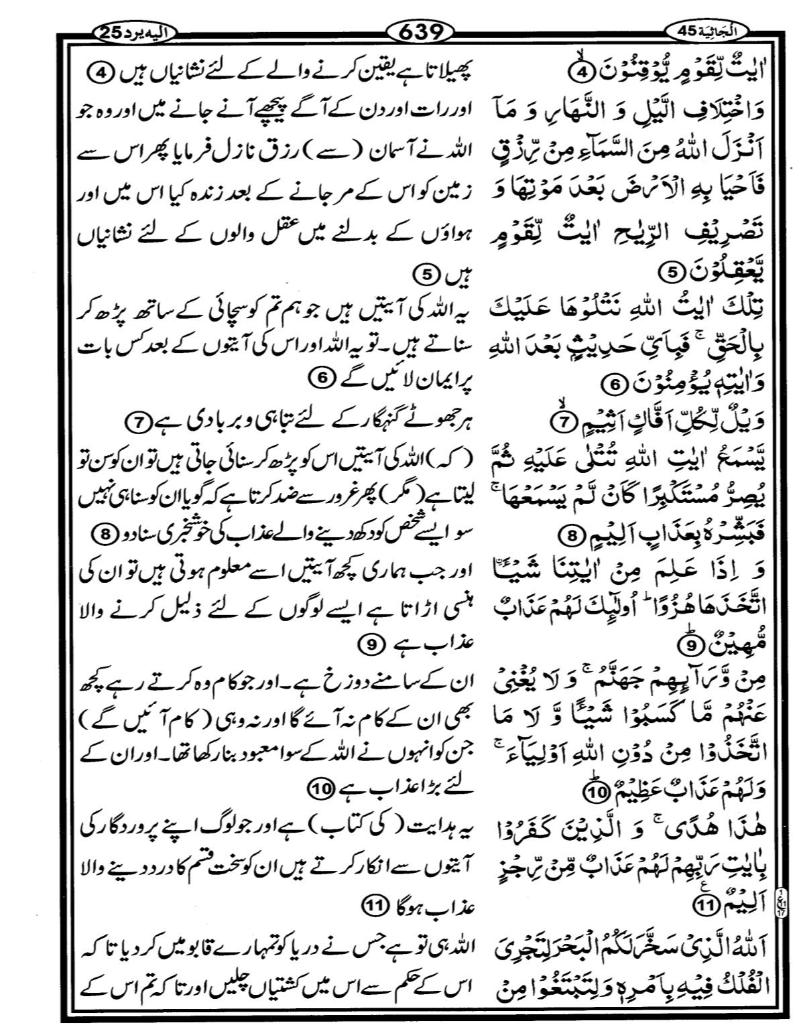 الجاثیة 45
639
الیه یرد 25
اٰیٰتٌ لِّقَوۡمٍ یُّوۡقِنُوۡنَ ۙ④
وَاخۡتِلَافِ الَّیۡلِ وَ النَّهَارِ وَ مَاۤ
اَنۡزَلَ اللّٰهُ مِنَ السَّمَآءِ مِنۡ رِّزۡقٍ
فَاَحۡیَا بِهِ الۡاَرۡضَ بَعۡدَ مَوۡتِهَا وَ
تَصۡرِیۡفِ الرِّیٰحِ اٰیٰتٌ لِّقَوۡمٍ
یَّعۡقِلُوۡنَ ⑤
تِلۡكَ اٰیٰتُ اللّٰهِ نَتۡلُوۡهَا عَلَیۡكَ
بِالۡحَقِّ ۚ فَبِاَیِّ حَدِیۡثٍۭ بَعۡدَ اللّٰهِ
وَاٰیٰتِهٖ یُؤۡمِنُوۡنَ ⑥
وَیۡلٌ لِّكُلِّ اَفَّاكٍ اَثِیۡمٍ ۙ⑦
یَّسۡمَعُ اٰیٰتِ اللّٰهِ تُتۡلٰی عَلَیۡهِ ثُمَّ
یُصِرُّ مُسۡتَكۡبِرًا كَاَنۡ لَّمۡ یَسۡمَعۡهَا ۚ
فَبَشِّرۡهُ بِعَذَابٍ اَلِیۡمٍ ⑧
وَ اِذَا عَلِمَ مِنۡ اٰیٰتِنَا شَیۡـًٔـا
اتَّخَذَهَا هُزُوًا ؕ اُولٰٓئِكَ لَهُمۡ عَذَابٌ
مُّهِیۡنٌ ؕ⑨
مِنۡ وَّرَآئِهِمۡ جَهَنَّمُ ۚ وَ لَا یُغۡنِیۡ
عَنۡهُمۡ مَّا كَسَبُوۡا شَیۡـًٔـا وَّ لَا مَا
اتَّخَذُوۡا مِنۡ دُوۡنِ اللّٰهِ اَوۡلِیَآءَ ۚ
وَلَهُمۡ عَذَابٌ عَظِیۡمٌ ؕ⑩
هٰذَا هُدًی ۚ وَ الَّذِیۡنَ كَفَرُوۡا
بِاٰیٰتِ رَبِّهِمۡ لَهُمۡ عَذَابٌ مِّنۡ رِّجۡزٍ
اَلِیۡمٌ ⑪ ع
اَللّٰهُ الَّذِیۡ سَخَّرَ لَكُمُ الۡبَحۡرَ لِتَجۡرِیَ
الۡفُلۡكُ فِیۡهِ بِاَمۡرِهٖ وَ لِتَبۡتَغُوۡا مِنۡ
پھیلاتا ہے یقین کرنے والے کے لئے نشانیاں ہیں ④
اور رات اور دن کے آگے پیچھے آنے جانے میں اور وہ جو
اللہ نے آسمان (سے) رزق نازل فرمایا پھر اس سے
زمین کو اس کے مر جانے کے بعد زندہ کیا اس میں اور
ہواؤں کے بدلنے میں عقل والوں کے لئے نشانیاں
ہیں ⑤
یہ اللہ کی آیتیں ہیں جو ہم تم کو سچائی کے ساتھ پڑھ کر
سناتے ہیں۔ تو یہ اللہ اور اس کی آیتوں کے بعد کس بات
پر ایمان لائیں گے ⑥
ہر جھوٹے گنہگار کے لئے تباہی و بربادی ہے ⑦
(کہ) اللہ کی آیتیں اس کو پڑھ کر سنائی جاتی ہیں تو ان کو سن تو
لیتا ہے (مگر) پھر غرور سے ضد کرتا ہے کہ گویا ان کو سنا ہی نہیں
سو ایسے شخص کو دکھ دینے والے عذاب کی خوشخبری سنا دو ⑧
اور جب ہماری کچھ آیتیں اسے معلوم ہوتی ہیں تو ان کی
ہنسی اڑاتا ہے ایسے لوگوں کے لئے ذلیل کرنے والا
عذاب ہے ⑨
ان کے سامنے دوزخ ہے۔ اور جو کام وہ کرتے رہے کچھ
بھی ان کے کام نہ آئے گا اور نہ وہی (کام آئیں گے)
جن کو انہوں نے اللہ کے سوا معبود بنا رکھا تھا۔ اور ان کے
لئے بڑا عذاب ہے ⑩
یہ ہدایت (کی کتاب) ہے اور جو لوگ اپنے پروردگار کی
آیتوں سے انکار کرتے ہیں ان کو سخت قسم کا درد دینے والا
عذاب ہوگا ⑪
اللہ ہی تو ہے جس نے دریا کو تمہارے قابو میں کر دیا تا کہ
اس کے حکم سے اس میں کشتیاں چلیں اور تا کہ تم اس کے